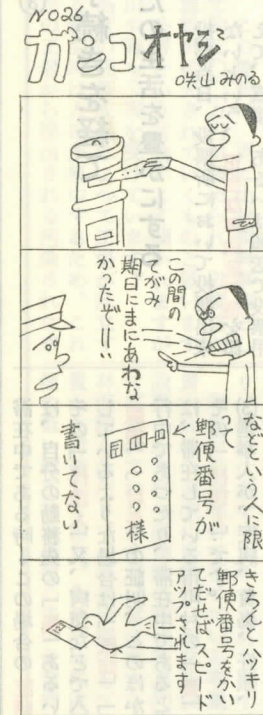 NO26
ガンコオヤジ
咲山みのる
この間の
てがみ
期日にまにあわな
かったぞーーい
などという人に限
って
郵便番号が
様
書いてない
きちんとハッキリ
郵便番号をかい
てだせばスピード
アップされます